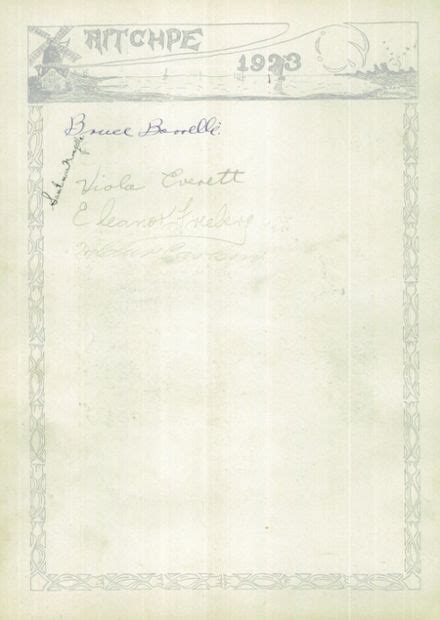 AITCHPE
1923
Bruce Borrelli
Viola Everett
Eleanor Freberg